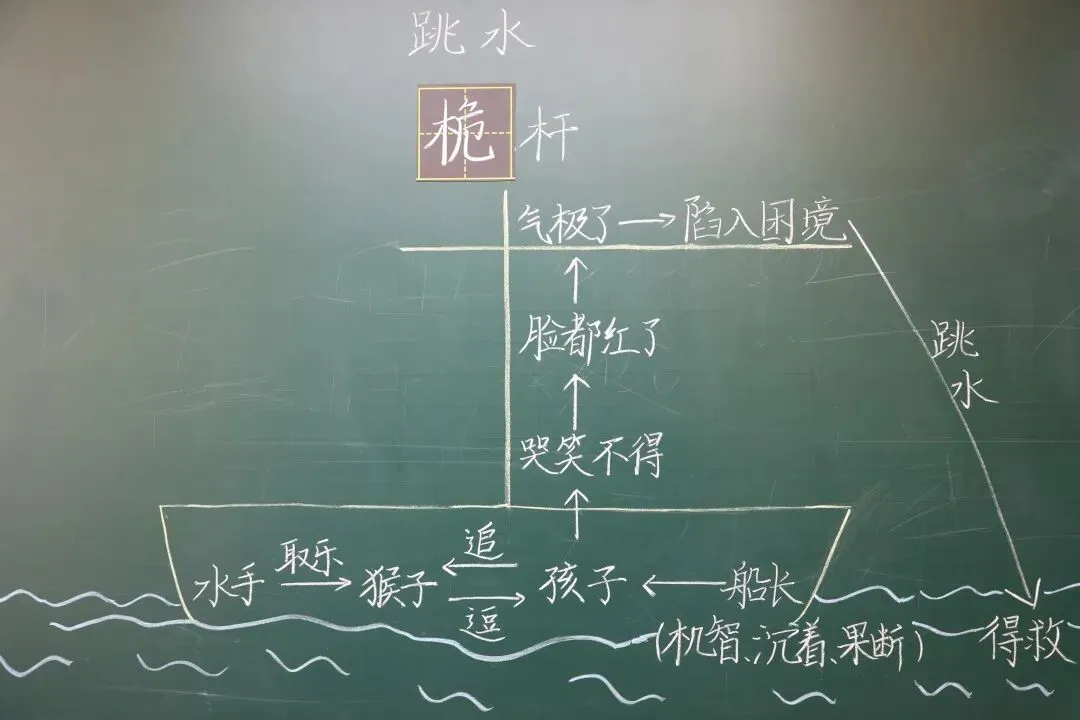 跳水
桅杆
气极了→陷入困境
脸都红了
跳水
哭笑不得
水手 取乐→ 猴子 追← 逗→ 孩子 ← 船长
(机智、沉着、果断)
得救